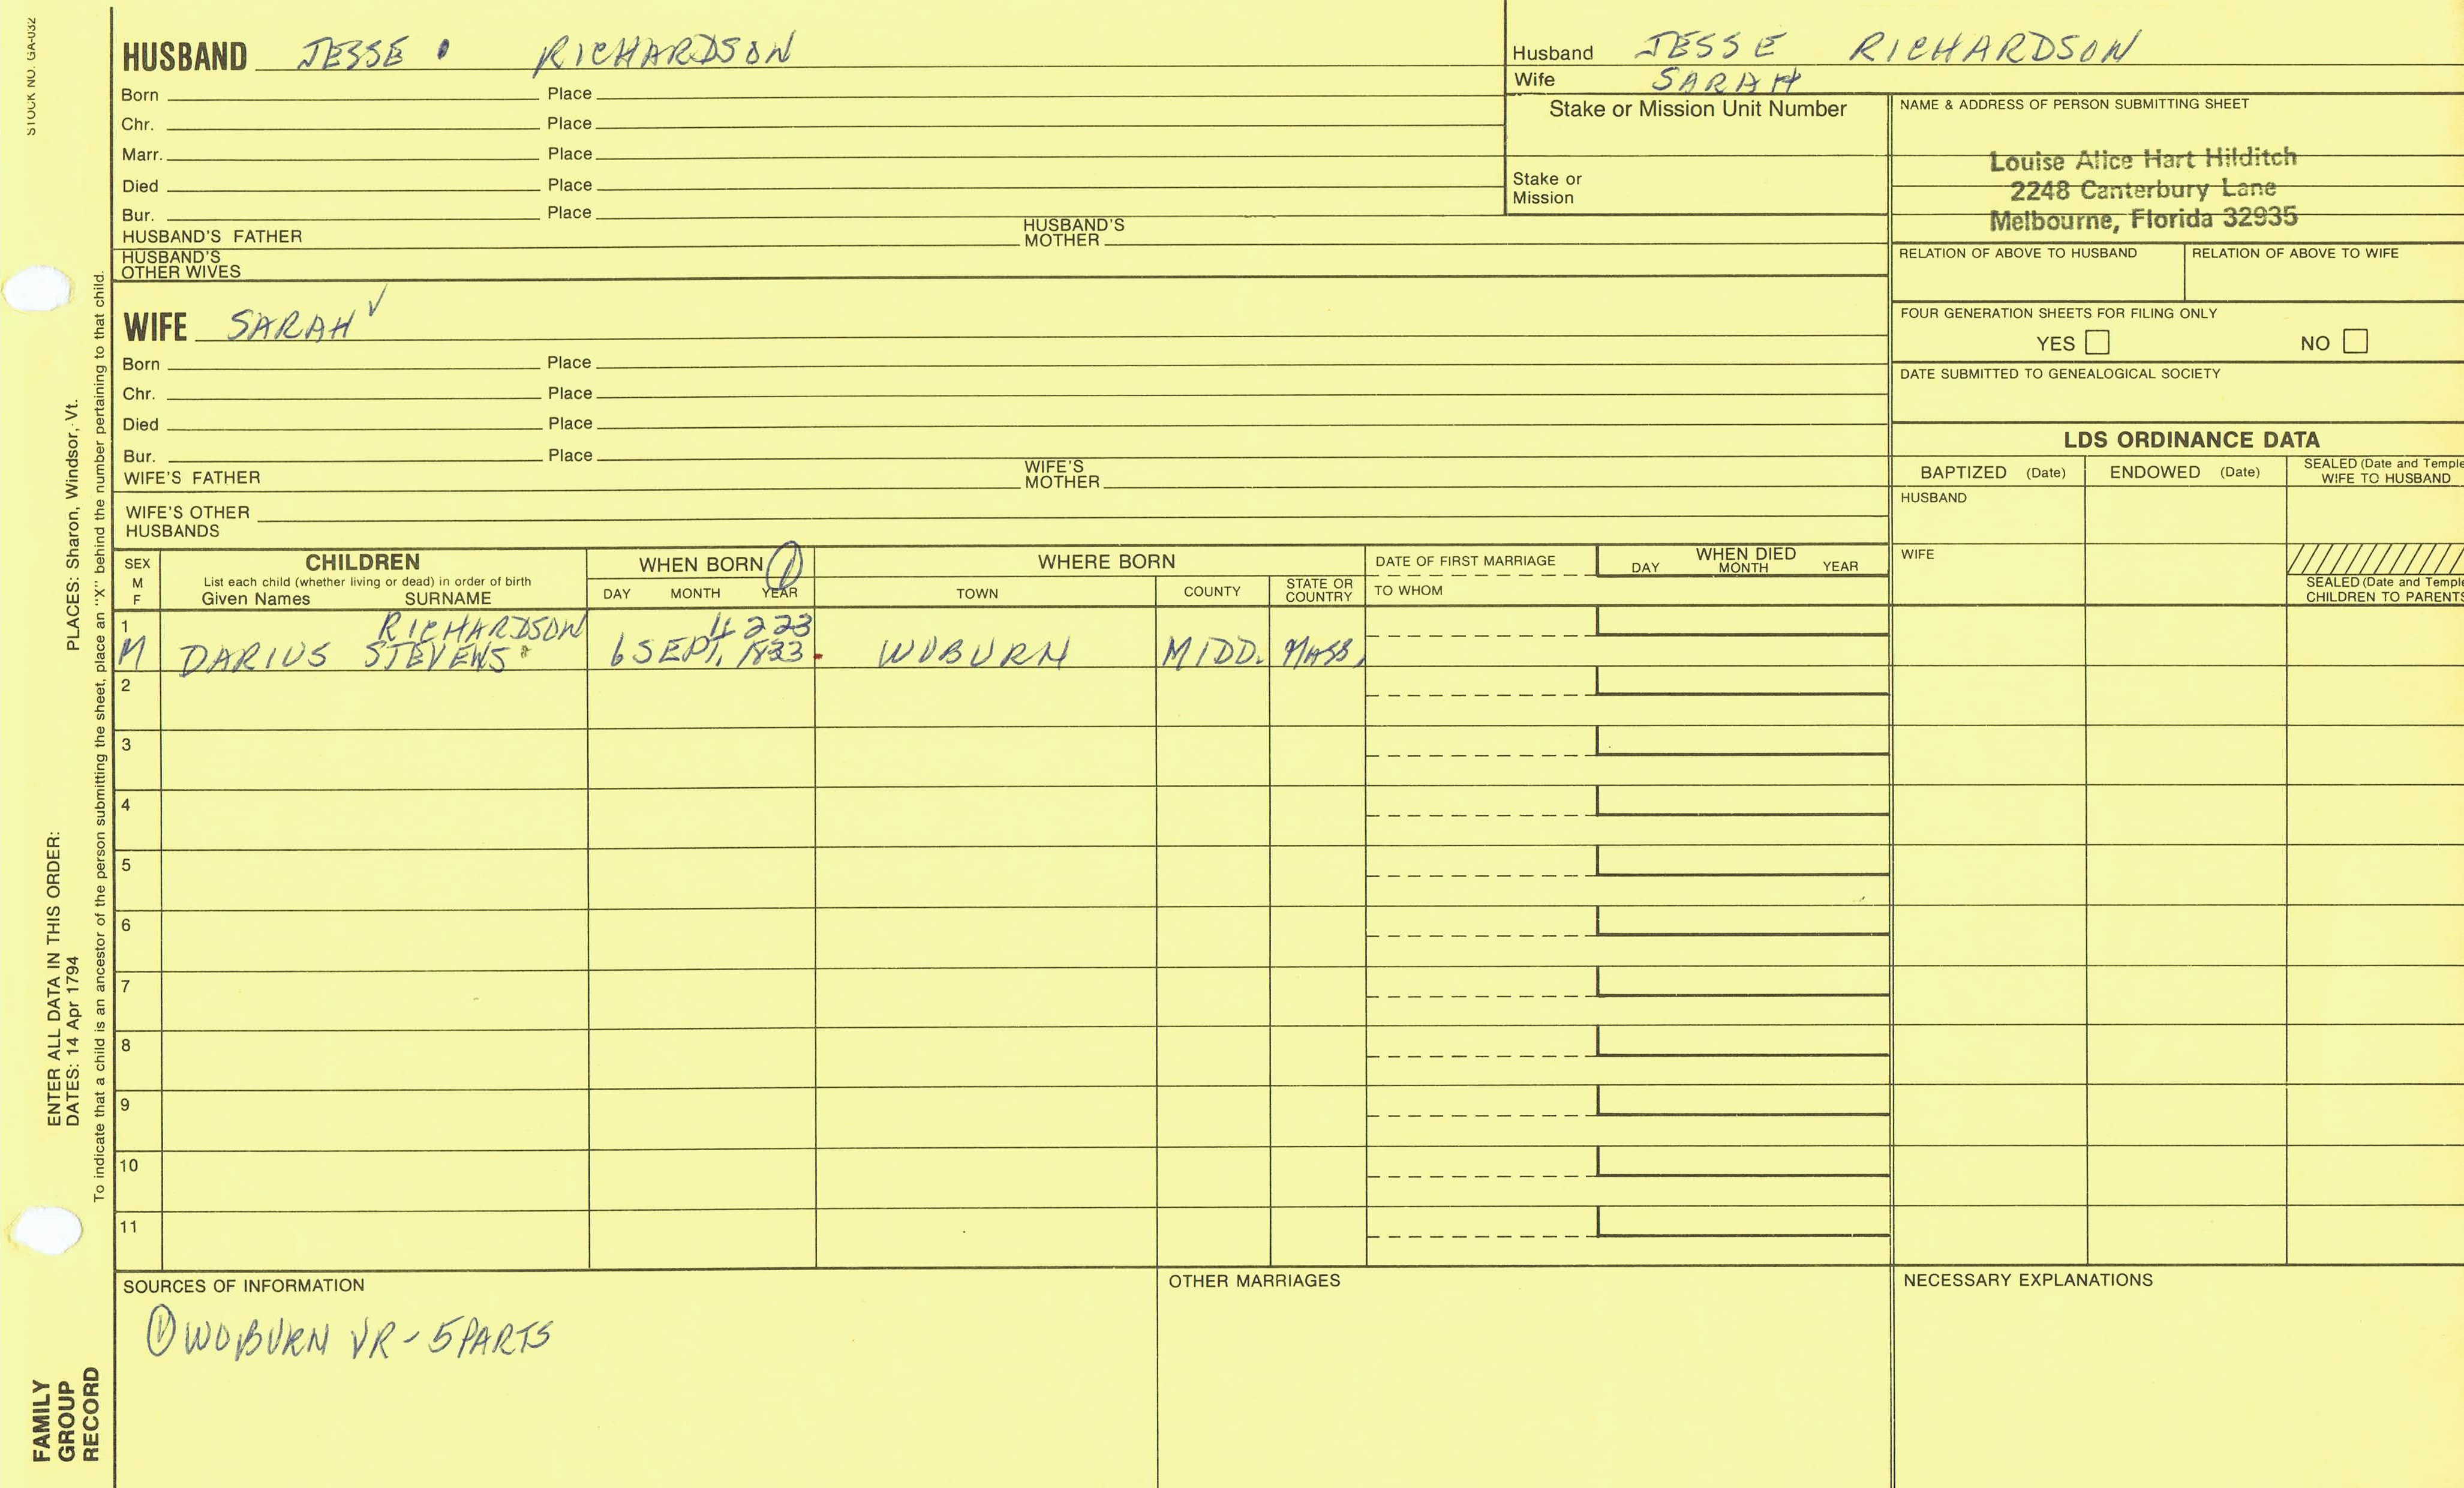 STOCK NO. GA-032
HUSBAND JESSE RICHARDSON
Born Place
Chr. Place
Marr. Place
Died Place
Bur. Place
HUSBAND'S FATHER HUSBAND'S MOTHER
HUSBAND'S OTHER WIVES
Husband JESSE RICHARDSON
Wife SARAH
Stake or Mission Unit Number
Stake or Mission
NAME & ADDRESS OF PERSON SUBMITTING SHEET
Louise Alice Hart Hilditch
2248 Canterbury Lane
Melbourne, Florida 32935
RELATION OF ABOVE TO HUSBAND RELATION OF ABOVE TO WIFE
FOUR GENERATION SHEETS FOR FILING ONLY
YES NO
DATE SUBMITTED TO GENEALOGICAL SOCIETY
WIFE SARAH ✓
Born Place
Chr. Place
Died Place
Bur. Place
WIFE'S FATHER WIFE'S MOTHER
WIFE'S OTHER HUSBANDS
LDS ORDINANCE DATA
BAPTIZED (Date) ENDOWED (Date) SEALED (Date and Temple WIFE TO HUSBAND
HUSBAND
WIFE
SEALED (Date and Temple CHILDREN TO PARENTS
SEX M F
CHILDREN
List each child (whether living or dead) in order of birth
Given Names SURNAME
WHEN BORN ①
DAY MONTH YEAR
WHERE BORN
TOWN COUNTY STATE OR COUNTRY
DATE OF FIRST MARRIAGE
TO WHOM
WHEN DIED
DAY MONTH YEAR
1 RICHARDSON 4223
M DARIUS STEVENS 6 SEPT. 1833 WOBURN MIDD. MASS.
2
3
4
5
6
7
8
9
10
11
SOURCES OF INFORMATION
① WOBURN VR - 5 PARTS
OTHER MARRIAGES
NECESSARY EXPLANATIONS
ENTER ALL DATA IN THIS ORDER:
DATES: 14 Apr 1794 PLACES: Sharon, Windsor, Vt.
To indicate that a child is an ancestor of the person submitting the sheet, place an "X" behind the number pertaining to that child.
FAMILY
GROUP
RECORD